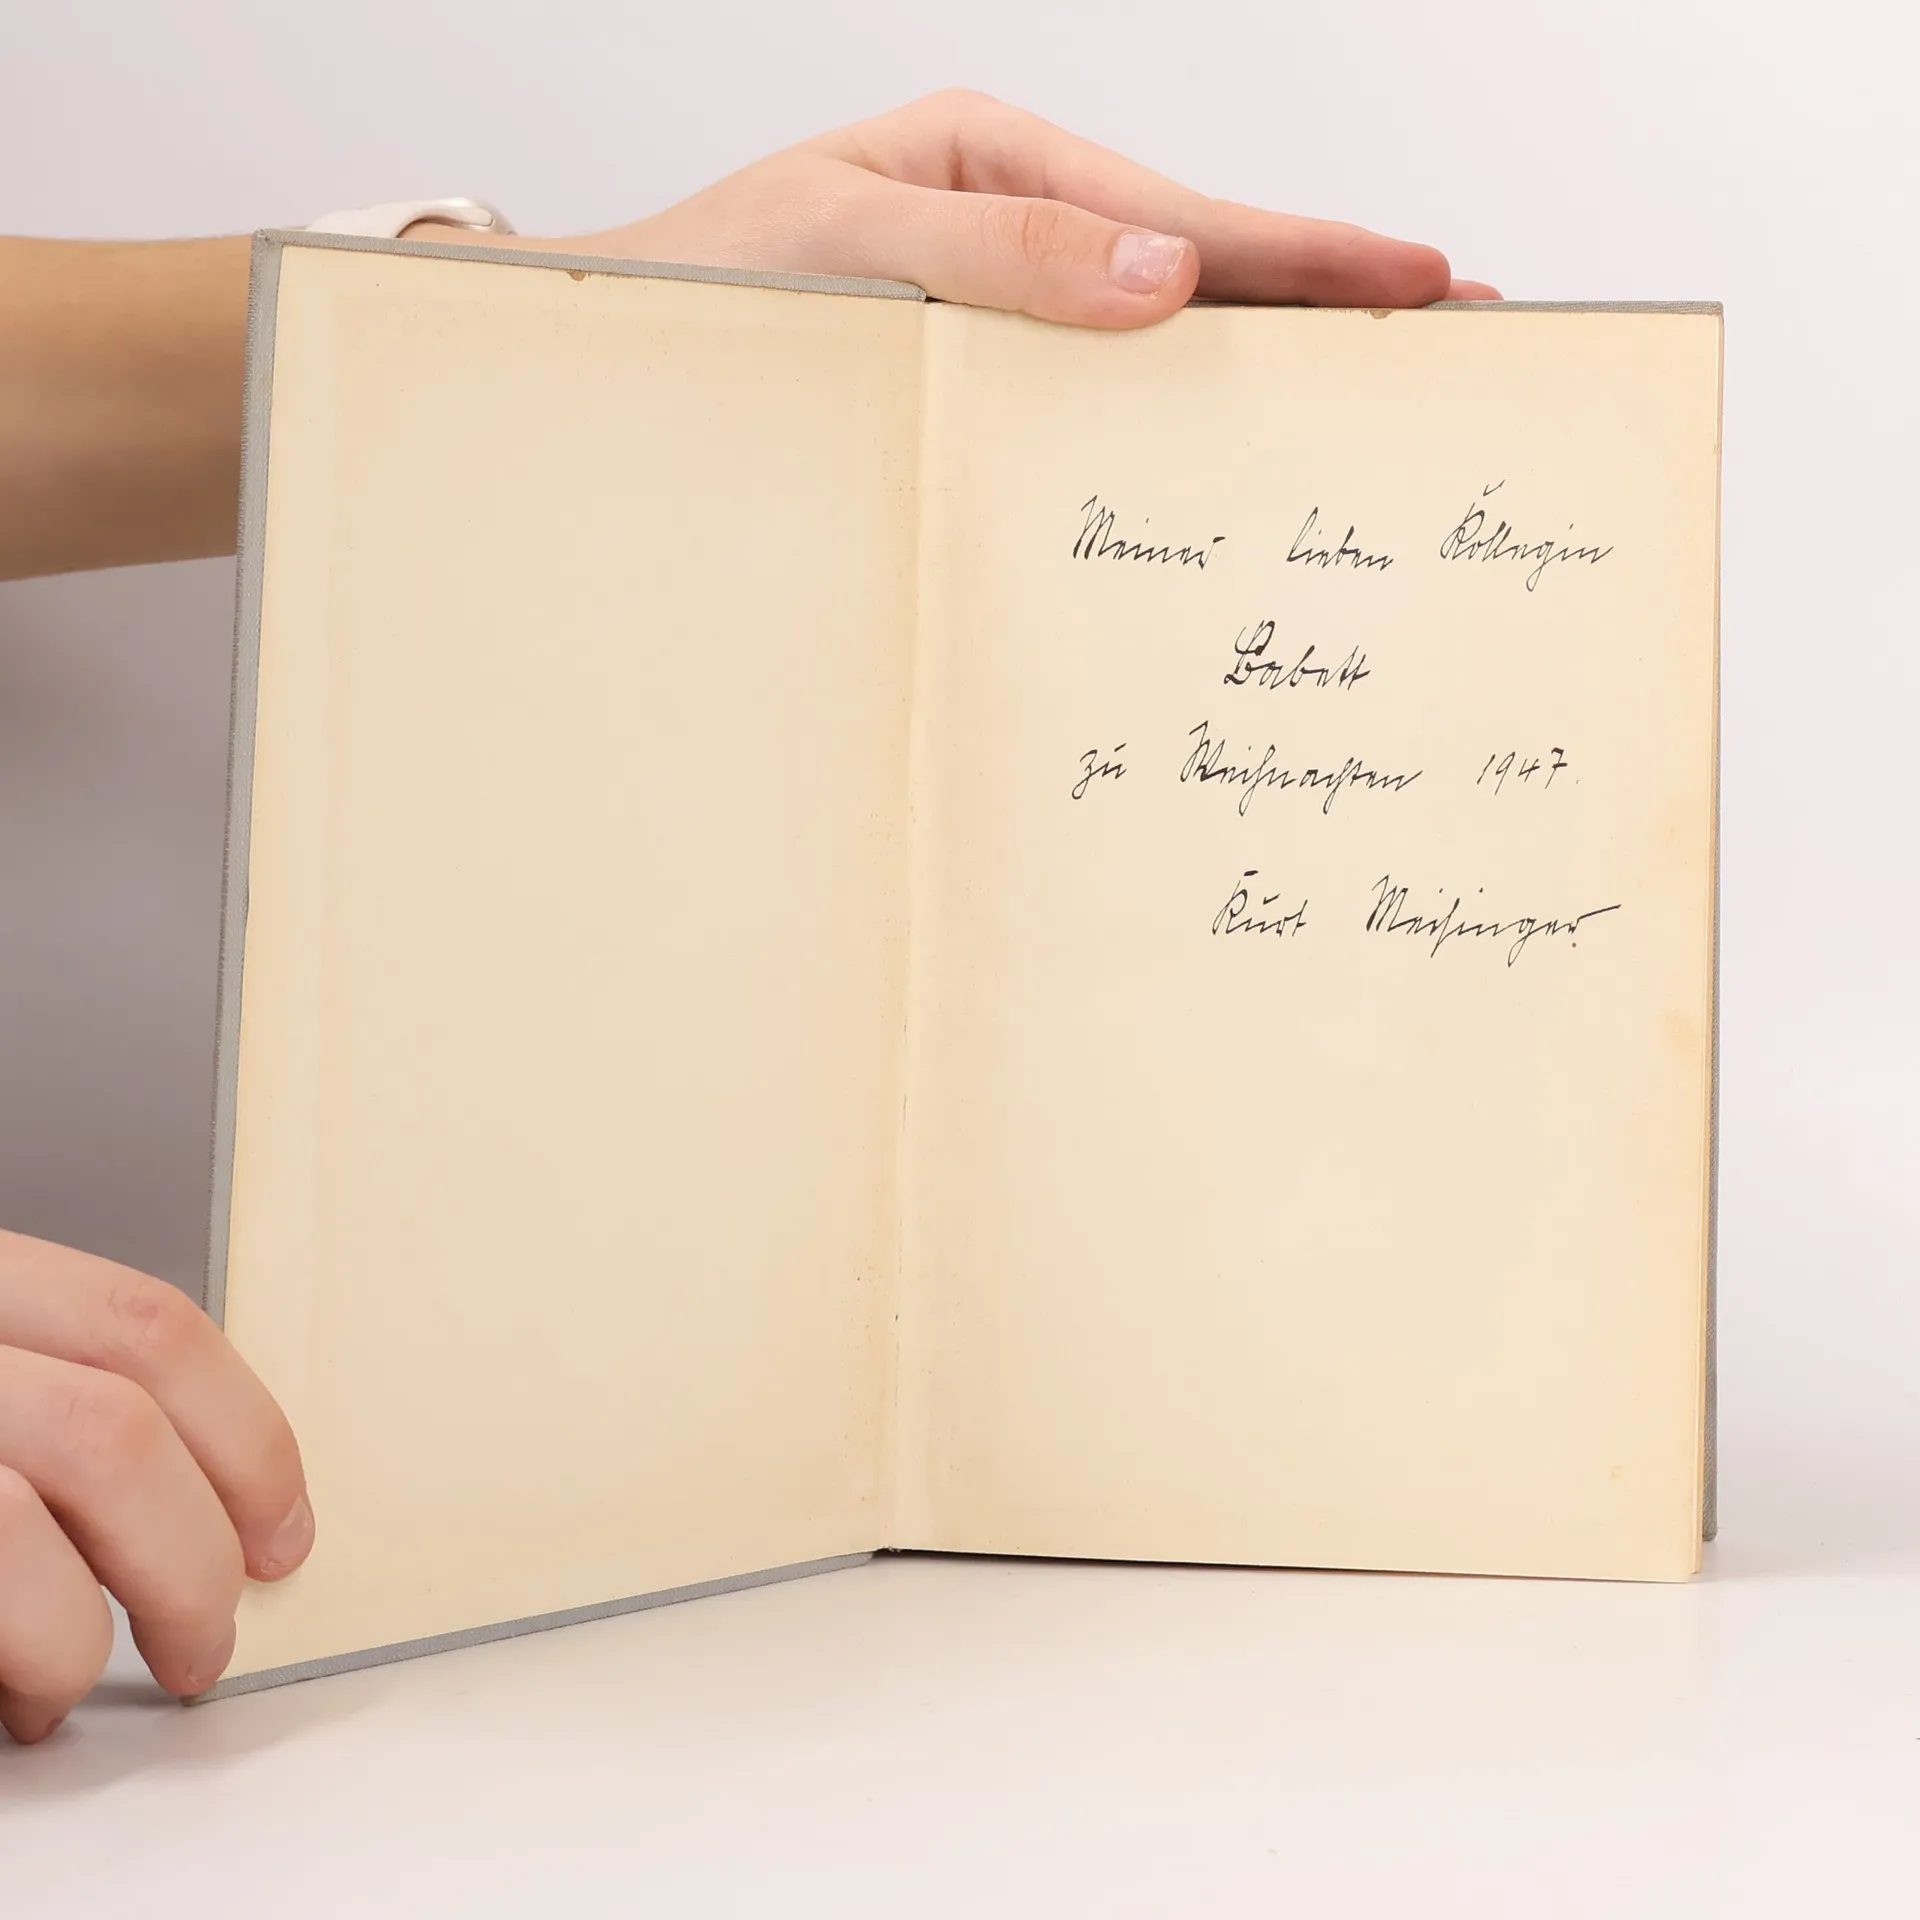 Meiner lieben Kollegin
Babett
zu Weihnachten 1947.
Kurt Meisinger.